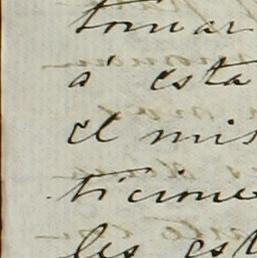 tomar
á esta
el mis
ticione
les est